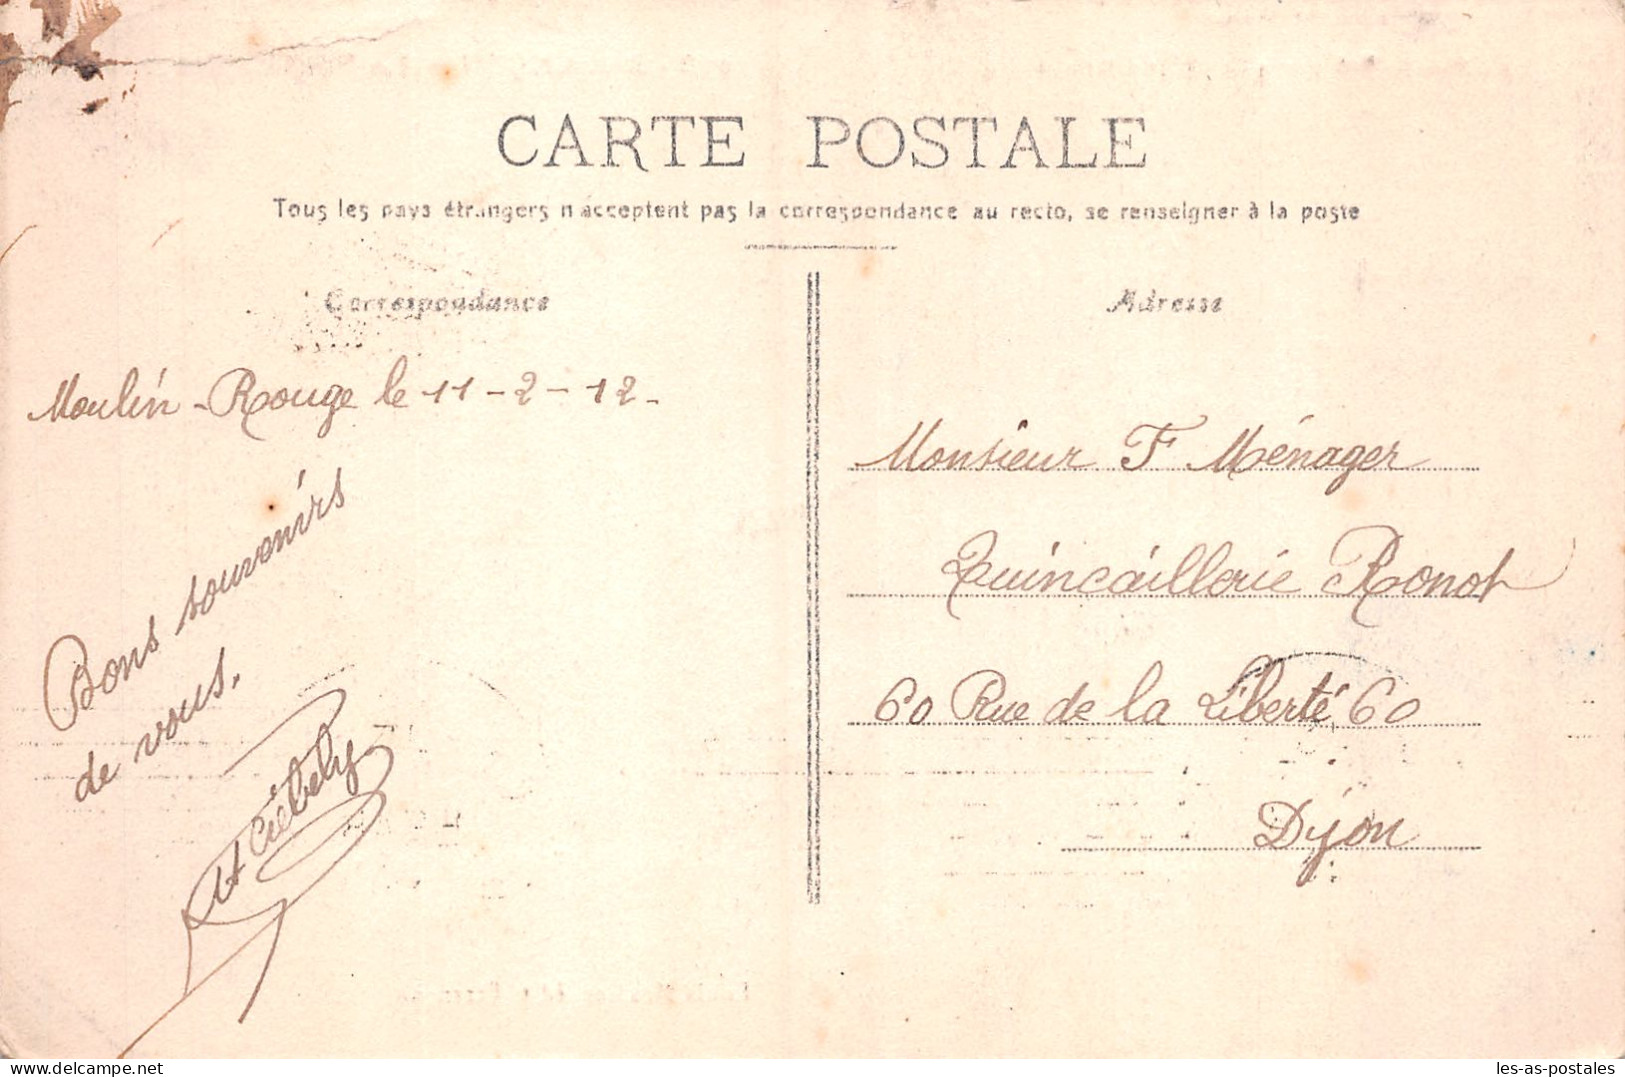 CARTE POSTALE
Tous les pays étrangers n'acceptent pas la correspondance au recto, se renseigner à la poste
Correspondance
Adresse
Moulin-Rouge le 11-2-12-
Bons souvenirs
de vous.
Monsieur F Ménager
Quincaillerie Ronot
60 Rue de la Liberté 60
Dijon
les-as-postales